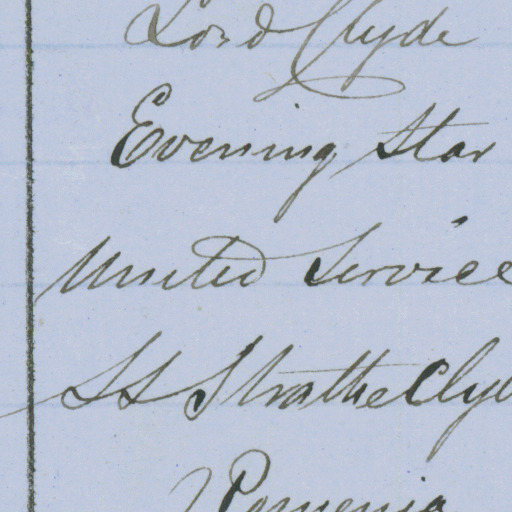 Lord Clyde
Evening Star
United Service
SS Strathe Clyd
Pomenia